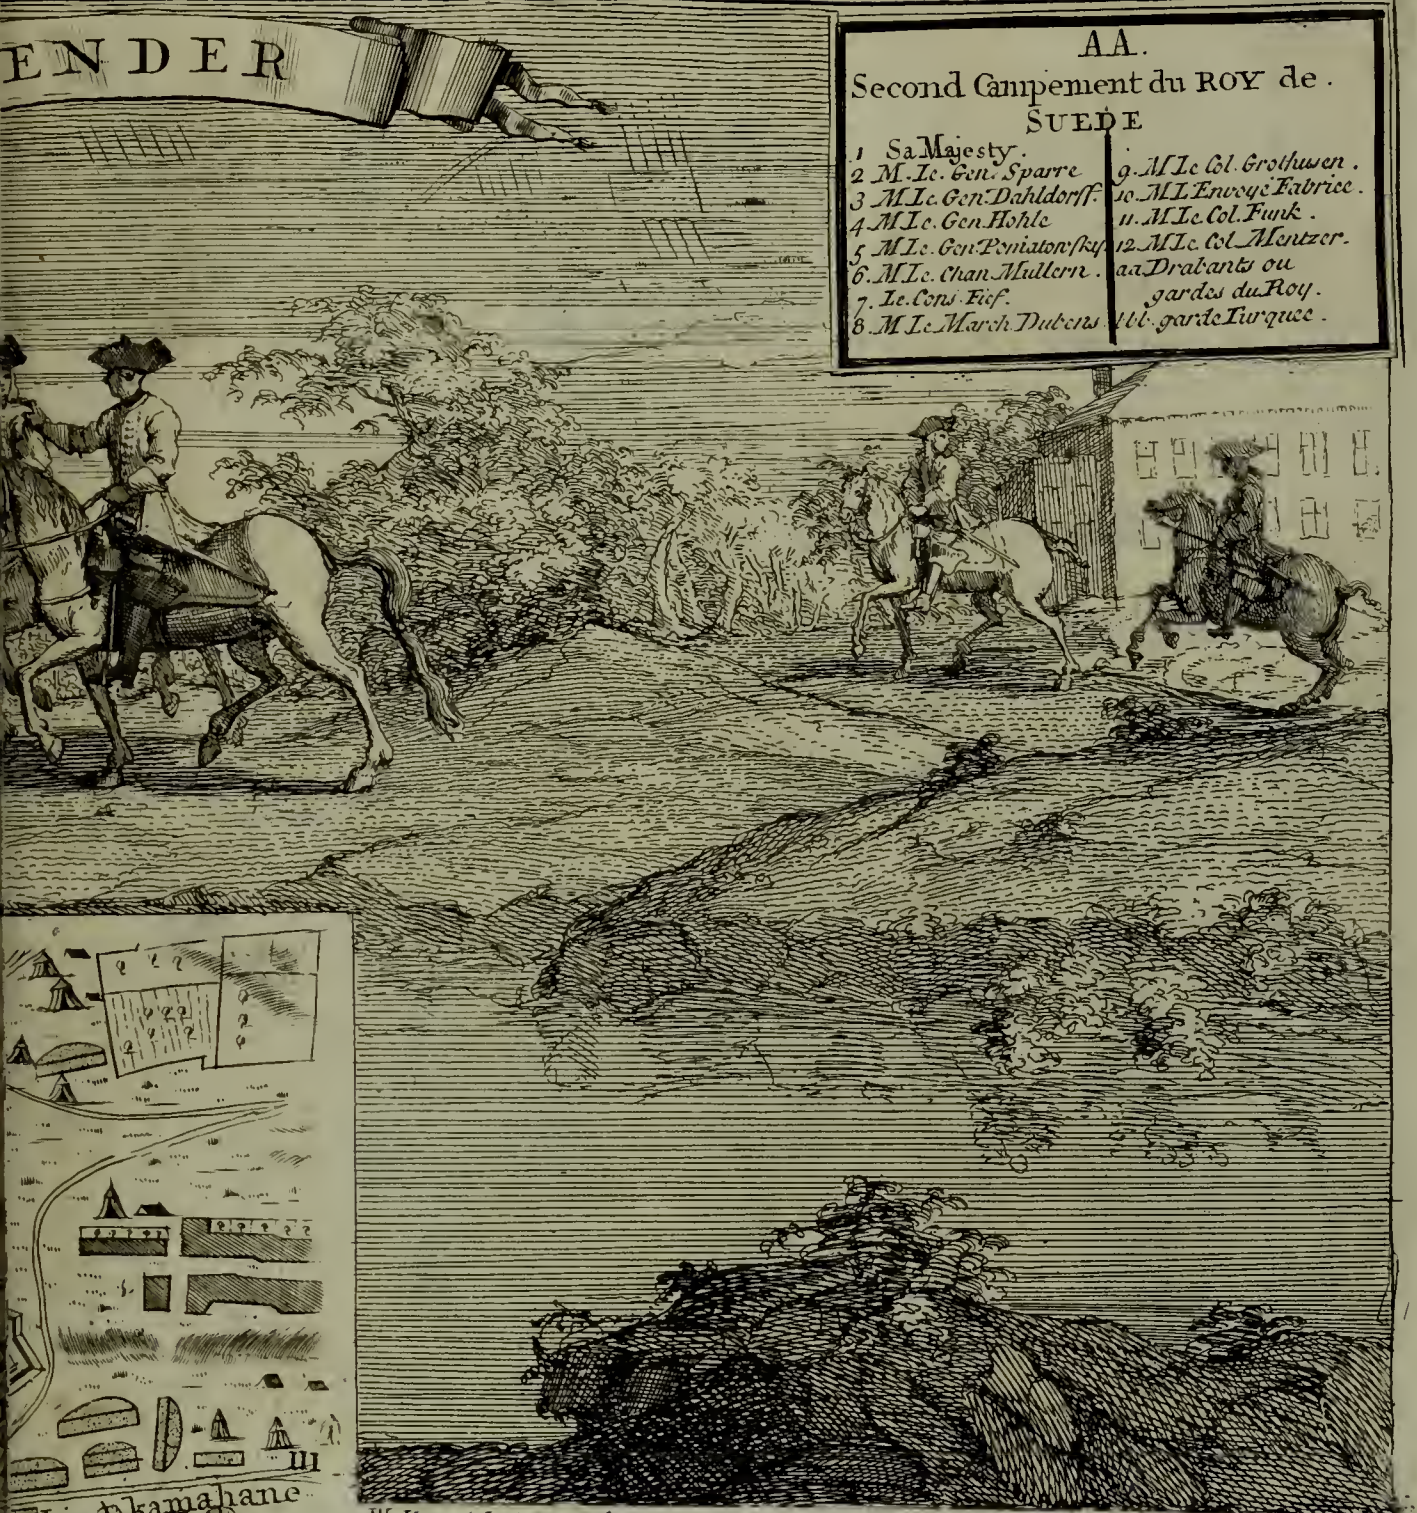 ENDER
AA.
Second Campement du ROY de.
SUEDE
1 Sa Majesty.
2 M. Le. Gen. Sparre
3 M Le. Gen. Dahldorff.
4 M Le. Gen. Hohle
5 M Le. Gen. Poniatowsky
6. M Le. Chan Mullern.
7. Le. Cons. Fief.
8 M Le March Dubens
9. M Le Col. Grothusen.
10. M L Envoyé Fabrice.
11. M Le. Col. Funk.
12 M Le. Col Mentzer.
aa Drabants ou
gardes du Roy.
bb. garde Turquee.
III